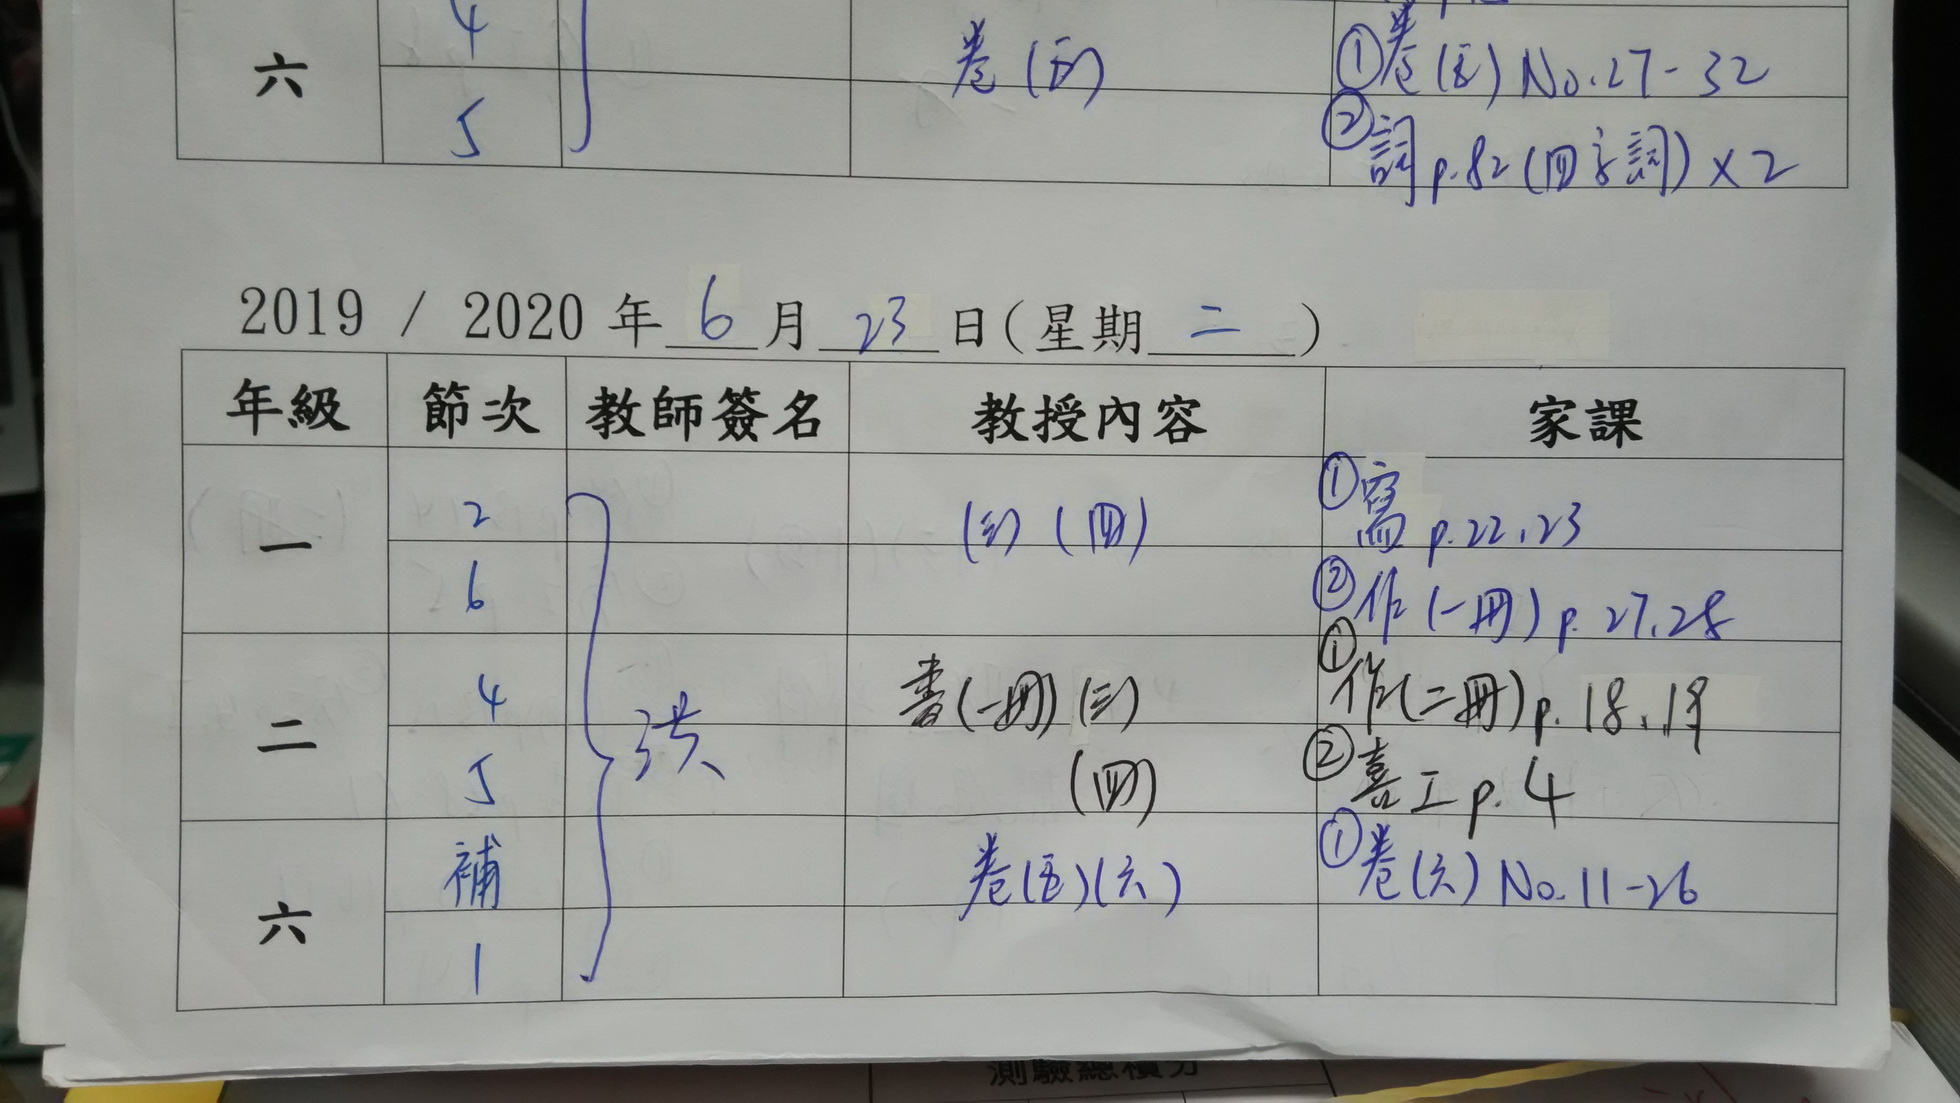 4
六
卷(五)
①卷(五) No.27-32
5
②詞p.82(四字詞)×2
2019 / 2020 年 6 月 23 日(星期 二 )
年級 節次 教師簽名 教授內容 家課
一
2
(三) (四)
①寫 p.22,23
6
②作(一冊) p.27,28
二
洪
4
書(一冊)(三)
①作(二冊)p.18,19
5
(四)
②喜工p.4
六
補
卷(五)(六)
①卷(六) No.11-26
1
測驗總積分